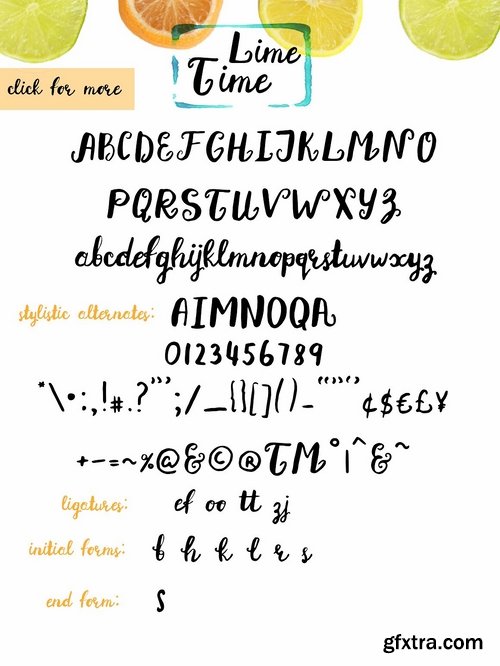 Lime
Time
click for more
ABCDEFGHIJKLMNO
PQRSTUVWXYZ
abcdefghijklmnopqrstuvwxyz
stylistic alternates: AIMNOQA
0123456789
*\•:,!#.?"';/_{}[]()-“”‘’¢$€£¥
+−=~%@&©®TM°|^&~
ligatures: ef oo tt zj
initial forms: b h k l r s
end form: s
gfxtra.com